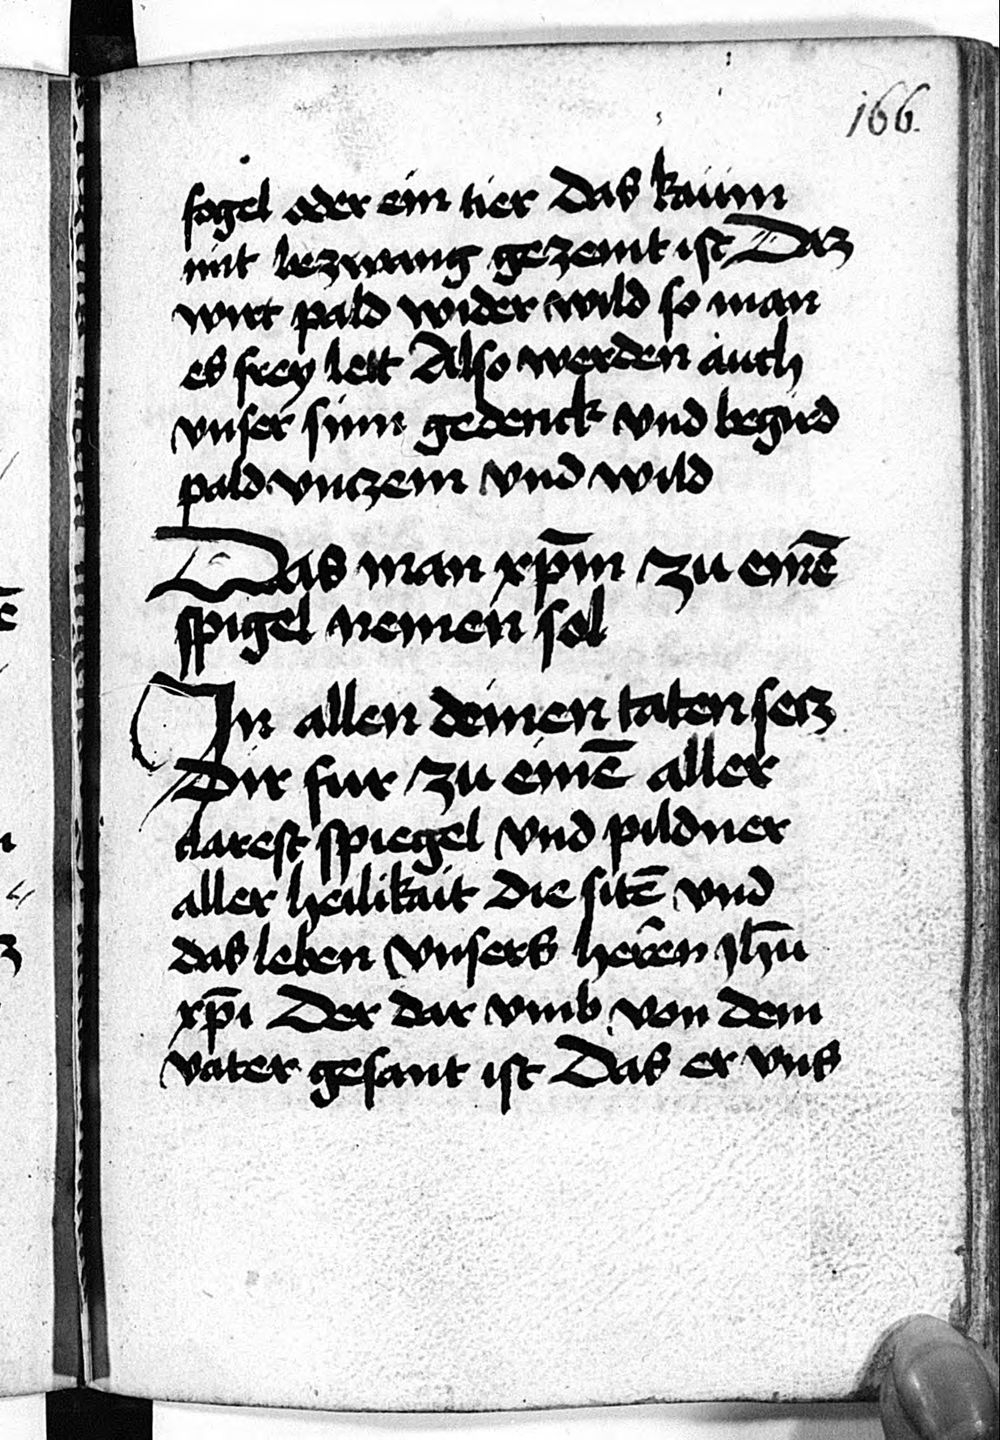 166.
fogel oder ein tier Das kaum
mit bezwang gezemt ist Daz
wirt pald wider wild so man
es frey lett Also werden auch
vnser sinn gedenck vnd begird
pald vnczem vnd wild
Das man xp̄m zu einē
spigel nemen sol
In allen deinen taten secz
Dir fur zu einē aller
clarest spiegel vnd pildner
aller heilikait Die sitē vnd
das leben vnsers herēn Jhū
xp̄i Der dar vmb von dem
vater gesant ist Das er vns